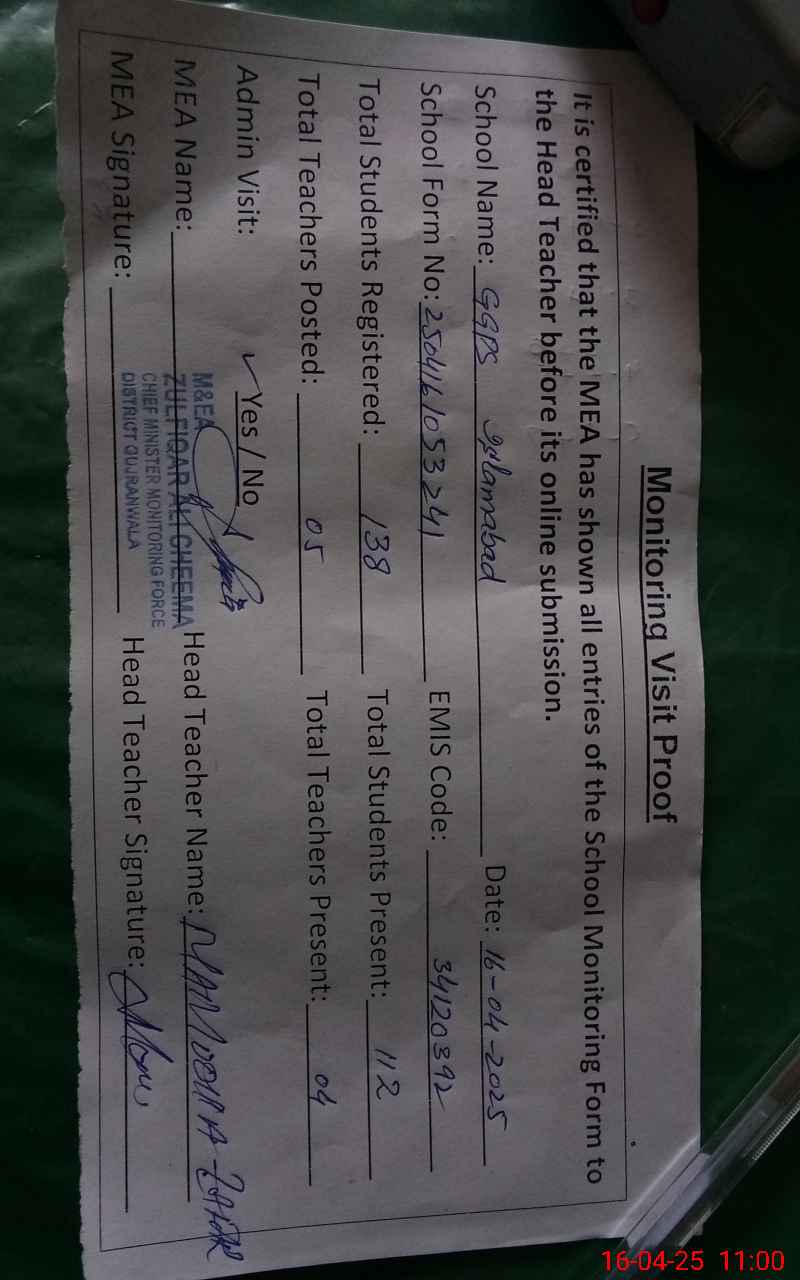 Monitoring Visit Proof
It is certified that the MEA has shown all entries of the School Monitoring Form to
the Head Teacher before its online submission.
School Name: GGPS Islamabad Date: 16-04-2025
School Form No: 2504161053241 EMIS Code: 34120392
Total Students Registered: 138 Total Students Present: 112
Total Teachers Posted: 05 Total Teachers Present: 04
Admin Visit: ✓ Yes / No
MEA Name: Head Teacher Name:
M&EA
ZULFIQAR ALI CHEEMA
CHIEF MINISTER MONITORING FORCE
DISTRICT GUJRANWALA
MEA Signature: Head Teacher Signature:
16-04-25 11:00